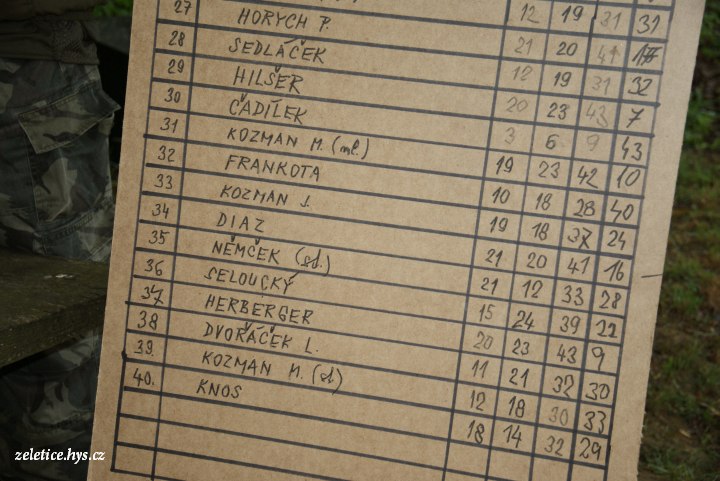 12 19 31 31
27 HORYCH P. 21 20 41
28 SEDLÁČEK 12 19 31 32
29 HILŠER 20 23 43 7
30 ČADÍLEK 3 6 9 43
31 KOZMAN M. (ml.) 19 23 42 10
32 FRANKOTA 10 18 28 40
33 KOZMAN J. 19 18 37 24
34 DIAZ 21 20 41 16
35 NĚMČEK (st.) 21 12 33 28
36 SELOUCKÝ 15 24 39 22
37 HERBERGER 20 23 43 9
38 DVOŘÁČEK L. 11 21 32 30
39. KOZMAN M. (st.) 12 18 30 33
40. KNOS 18 14 32 29
zeletice.hys.cz